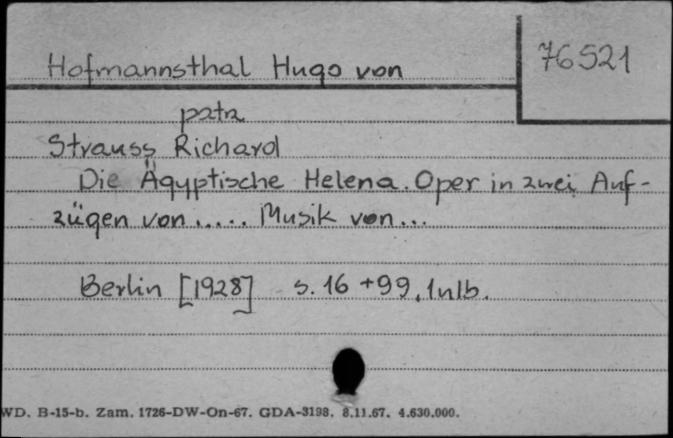 Hofmannsthal Hugo von
76521
patrz
Strauss Richard
Die Ägyptische Helena. Oper in zwei Auf-
zügen von ..... Musik von ...
Berlin [1928] s. 16 + 99, 1 nlb.
WD. B-15-b. Zam. 1726-DW-On-67. GDA-3198. 8.11.67. 4.630.000.